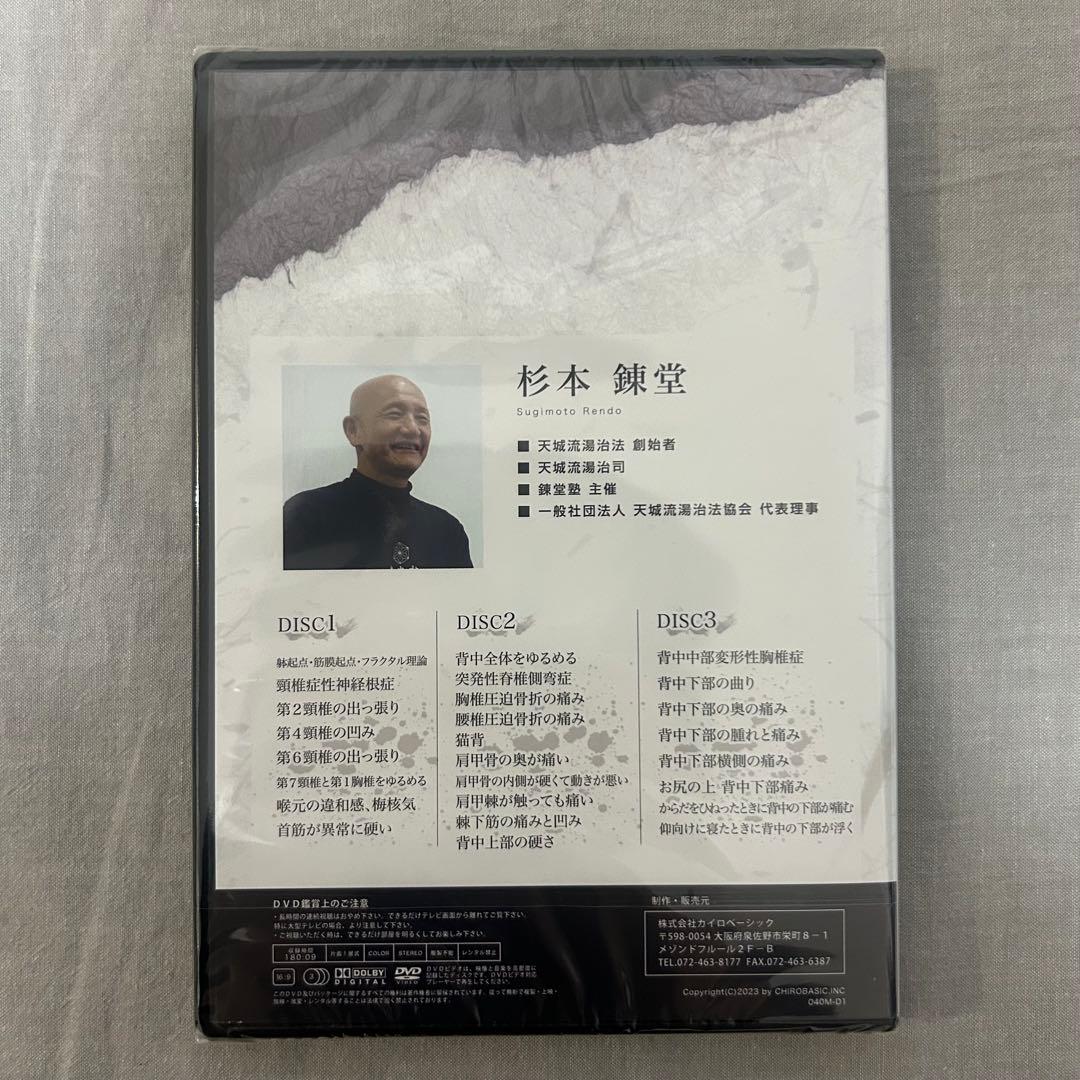 杉本 錬堂
Sugimoto Rendo
■ 天城流湯治法 創始者
■ 天城流湯治司
■ 錬堂塾 主催
■ 一般社団法人 天城流湯治法協会 代表理事
DISC1
躰起点・筋膜起点・フラクタル理論
頸椎症性神経根症
第2頸椎の出っ張り
第4頸椎の凹み
第6頸椎の出っ張り
第7頸椎と第1胸椎をゆるめる
喉元の違和感、梅核気
首筋が異常に硬い
DISC2
背中全体をゆるめる
突発性脊椎側弯症
胸椎圧迫骨折の痛み
腰椎圧迫骨折の痛み
猫背
肩甲骨の奥が痛い
肩甲骨の内側が硬くて動きが悪い
肩甲棘が触っても痛い
棘下筋の痛みと凹み
背中上部の硬さ
DISC3
背中中部変形性胸椎症
背中下部の曲り
背中下部の奥の痛み
背中下部の腫れと痛み
背中下部横側の痛み
お尻の上 背中下部痛み
からだをひねったときに背中の下部が痛む
仰向けに寝たときに背中の下部が浮く
DVD鑑賞上のご注意
・長時間の連続視聴はおやめ下さい。できるだけテレビ画面から離れてご覧下さい。
特に大型テレビの場合、より注意して下さい。
・ご視聴いただく時は、できるだけ部屋を明るくしてお楽しみ下さい。
収録時間
180:09
片面1層式
COLOR
STEREO
複製不能
レンタル禁止
16:9
3
DOLBY
DIGITAL
DVD
VIDEO
DVDビデオは、映像と音楽を高密度に
記録したディスクです。DVDビデオ対応
プレーヤーで再生してください。
このDVD及びパッケージに関するすべての権利は著作権者に留保されています。従って無断で複製・上映・
放映・改変・レンタル等することは法律で固く禁止されております。
制作・販売元
株式会社カイロベーシック
〒598-0054 大阪府泉佐野市栄町8-1
メゾンドフルール2F-B
TEL.072-463-8177 FAX.072-463-6387
Copyright(C)2023 by CHIROBASIC,INC
040M-D1